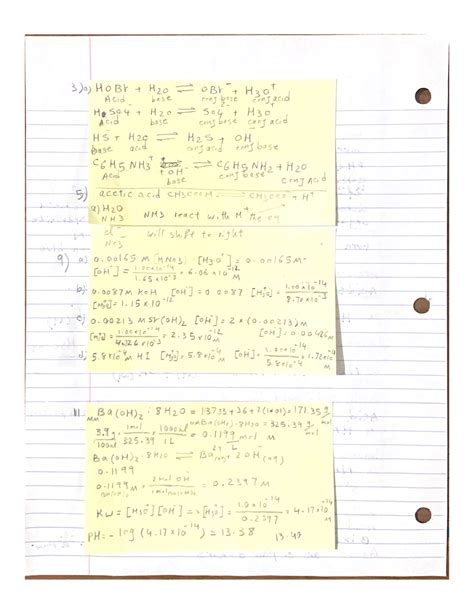 3)a) HOBr + H2O ⇌ OBr⁻ + H3O⁺
Acid base conj base conj acid
H2SO4 + H2O ⇌ SO4⁻ + H3O⁺
Acid base conj base conj acid
HS⁻ + H2O ⇌ H2S + OH⁻
base acid conj acid conj base
C6H5NH3⁺ + OH⁻ ⇌ C6H5NH2 + H2O
Acid base conj base conj Acid
5) acetic acid CH3COOH ⇌ CH3COO⁻ + H⁺
a) H2O
NH3 NH3 react with H⁺ the eq
will shift to right
9) a) 0.00165 M HNO3 [H3O⁺] = 0.00165 M
[OH⁻] = 1.00×10⁻¹⁴ / 1.65×10⁻³ = 6.06×10⁻¹² M
b) 0.0087 M KOH [OH⁻] = 0.0087 [H3O⁺] = 1.00×10⁻¹⁴ / 8.70×10⁻³
[H3O⁺] = 1.15×10⁻¹²
c) 0.00213 M Sr(OH)2 [OH⁻] = 2×(0.00213) M
[H3O⁺] = 1.00×10⁻¹⁴ / 4.26×10⁻³ = 2.35×10⁻¹² M [OH⁻] = 0.00426 M
d) 5.8×10⁻⁴ M HI [H3O⁺] = 5.8×10⁻⁴ [OH⁻] = 1.00×10⁻¹⁴ / 5.8×10⁻⁴ = 1.72×10
11. Ba(OH)2 · 8H2O = 137.33+36+2(1.01) = 171.35 g/mol
MM Ba(OH)2·8H2O = 325.39 g/mol
3.9 g / 100 ml × 1 mol / 325.39 × 1000 ml / 1 L = 0.1199 mol M
Ba(OH)2·8H2O ⇌ Ba²⁺(aq) + 2OH⁻(aq)
0.1199
0.1199 M × 2 mol OH / 1 mol = 0.2397 M
KW = [H3O⁺][OH⁻] = [H3O⁺] = 1.0×10⁻¹⁴ / 0.2397 = 4.17×10⁻¹⁴ M
PH = -log (4.17×10⁻¹⁴) = 13.38